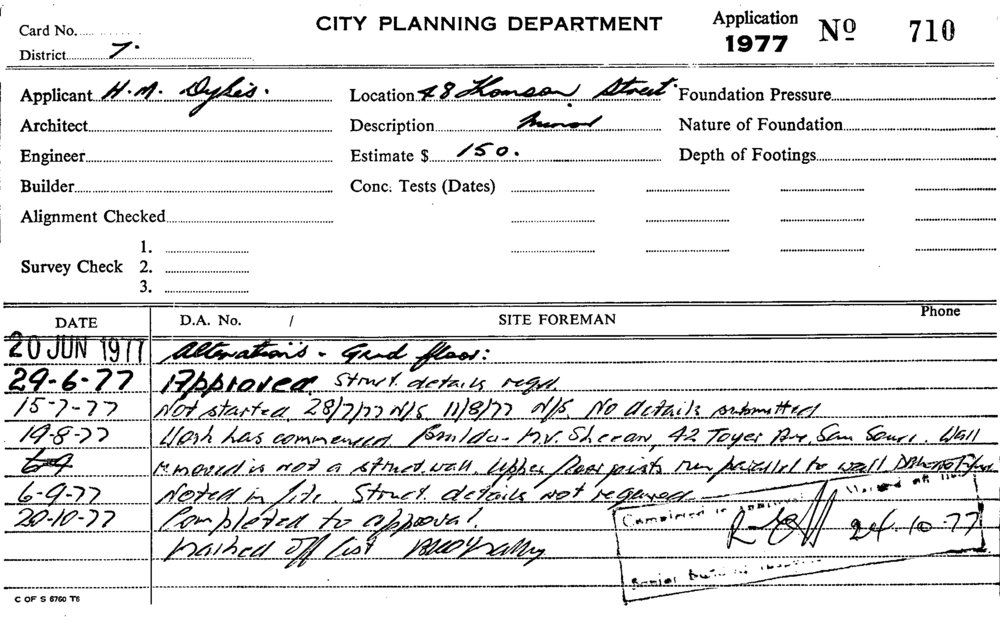 Card No.
CITY PLANNING DEPARTMENT
Application 1977 Nº 710
District 7.
Applicant H. M. Dykes. Location 48 Thomson Street. Foundation Pressure
Architect Description Minor Nature of Foundation
Engineer Estimate $ 150. Depth of Footings
Builder Conc. Tests (Dates)
Alignment Checked
1.
Survey Check 2.
3.
DATE D.A. No. / SITE FOREMAN Phone
20 JUN 1977 Alterations - Grnd floor:
29-6-77 Approved Struct. details reqd.
15-7-77 Not started 28/7/77 N/S 11/8/77 N/S No details submitted
19-8-77 Work has commenced Builder M.V. Sheean, 42 Toyer Ave, San Souci. Wall
removed is not a struct. wall. Upper floor joists run parallel to wall
6-9-77 Noted in file. Struct. details not required
20-10-77 Completed to approval.
marked off list
Completed to Marked off list
24-10-77
Senior Building
C OF S 6760 T6